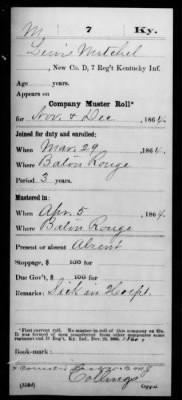 M 7 Ky.
Lewis Mitchel
, New Co. D, 7 Reg't Kentucky Inf.
Age years.
Appears on
Company Muster Roll*
for Nov. & Dec , 1864.
Joined for duty and enrolled:
When Mar. 29 , 1864.
Where Baton Rouge
Period 3 years.
Mustered in:
When Apr. 5 , 1864
Where Baton Rouge
Present or absent Absent
Stoppage, $ 100 for
Due Gov't, $ 100 for
Remarks: Sick in Hospt.
*First current roll. No muster-in roll of this company on file.
It was formed of men transferred from other companies same
regiment and
Book-mark:
Collings
(358d) Copyist.